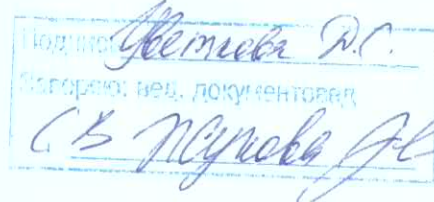 Подпись Цветкова Д.С.
Заверяю: вед. документовед
С.В Жукова